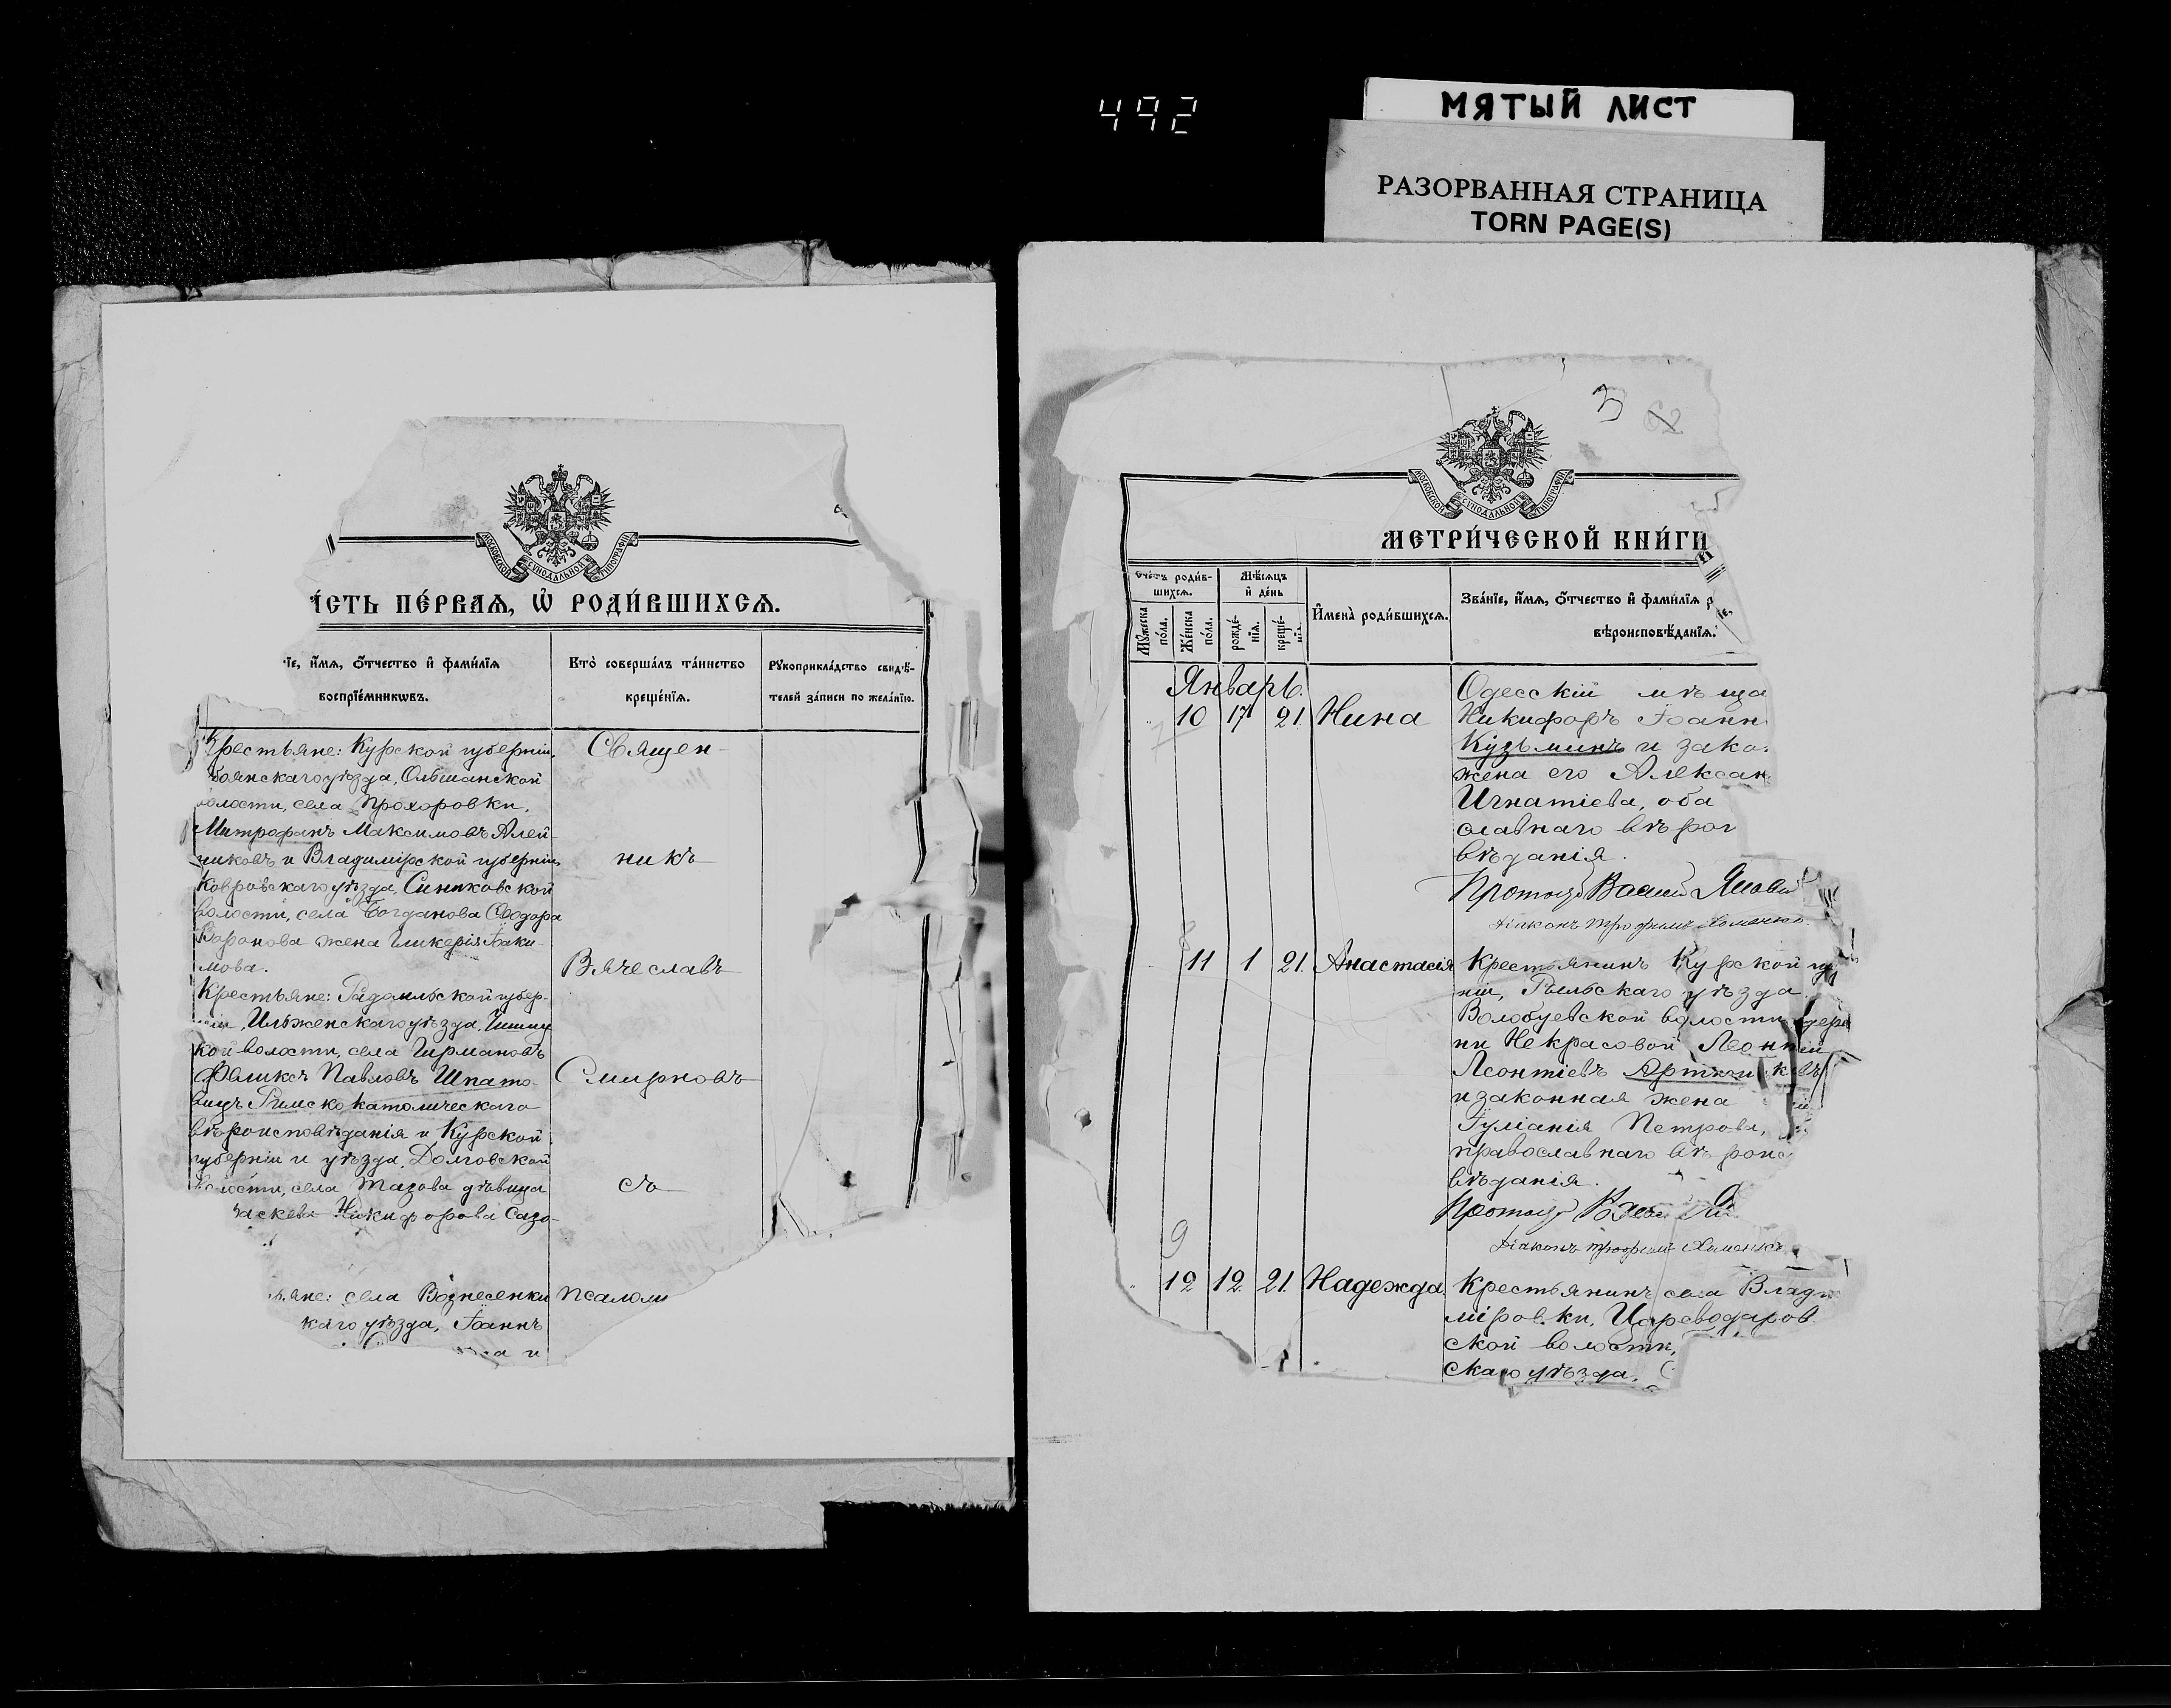 492
МЯТЫЙ ЛИСТ
РАЗОРВАННАЯ СТРАНИЦА
TORN PAGE(S)
МОСКОВСКОЙ СУНОДАЛЬНОЙ ТИПОГРАФІИ
ІСТЬ ПЕ́РВАЯ, Ѽ РОДИ́ВШИХСЯ.
їе, и҆́мѧ, ѻ҆́тчество и҆ фами́лїѧ
воспрїе́мникѡвъ.
Кто̀ соверша́лъ та́инство
креще́нїѧ.
Рꙋкоприкла́дство свидѣ́-
телей за́писи по жела́нїю.
Крестьяне: Курской губерніи,
боянскаго уѣзда, Ольшанской
волости, села Прохоровки,
Митрофанъ Максимовъ Алей-
никовъ и Владимірской губерніи,
Ковровскаго уѣзда, Синиковской
волости, села Богданова Ѳеодора
Воронова жена Гликерія Іоаки-
мова.
Крестьяне:
уѣзда,
кой волости, села
Феликсъ Павловъ Шпато-
вичъ Римско католическаго
вѣроисповѣданія и Курской
губерніи и уѣзда, Долговской
волости, села Тазова дѣвица
аскева Никифорова Сазо-
яне: села Вознесенки
каго уѣзда, Іоаннъ
а и
Священ-
никъ
Вячеславъ
Смирновъ
съ
Псалом
3
62
МОСКОВСКОЙ СУНОДАЛЬНОЙ ТИПОГРАФІИ
МЕТРИ́ЧЕСКОЙ КНИ́ГИ
Сче́тъ роди́в-
шихсѧ.
Мꙋ́жеска по́ла.
Же́нска по́ла.
Мѣ́сѧцъ
и҆ де́нь
рожде́-нїѧ.
креще́-нїѧ.
И҆мена̀ роди́вшихсѧ.
Зва́нїе, и҆́мѧ, ѻ҆́тчество и҆ фами́лїѧ р
вѣроисповѣ́данїѧ.
Январь.
10 17 21 Нина
Одесскій мѣща
Никифоръ Іоанн
Кузьминъ и зако
жена его Алексан
Игнатіева, оба
славнаго вѣрои
вѣданія.
Діаконъ Трофимъ Хоменко
8
11 1 21 Анастасія
Крестьянинъ Курской гу
ніи, Рыльскаго уѣзда
Волобуевской волости, дере
ни Некрасовой Леонтій
Леонтіевъ
и законная жена
Іуліанія Петрова,
православнаго вѣроис
вѣданія.
Діаконъ Трофимъ Хоменко
9
12 12 21 Надежда
Крестьянинъ села Влади
міровки, Царедаровъ
ской волости,
скаго уѣзда,